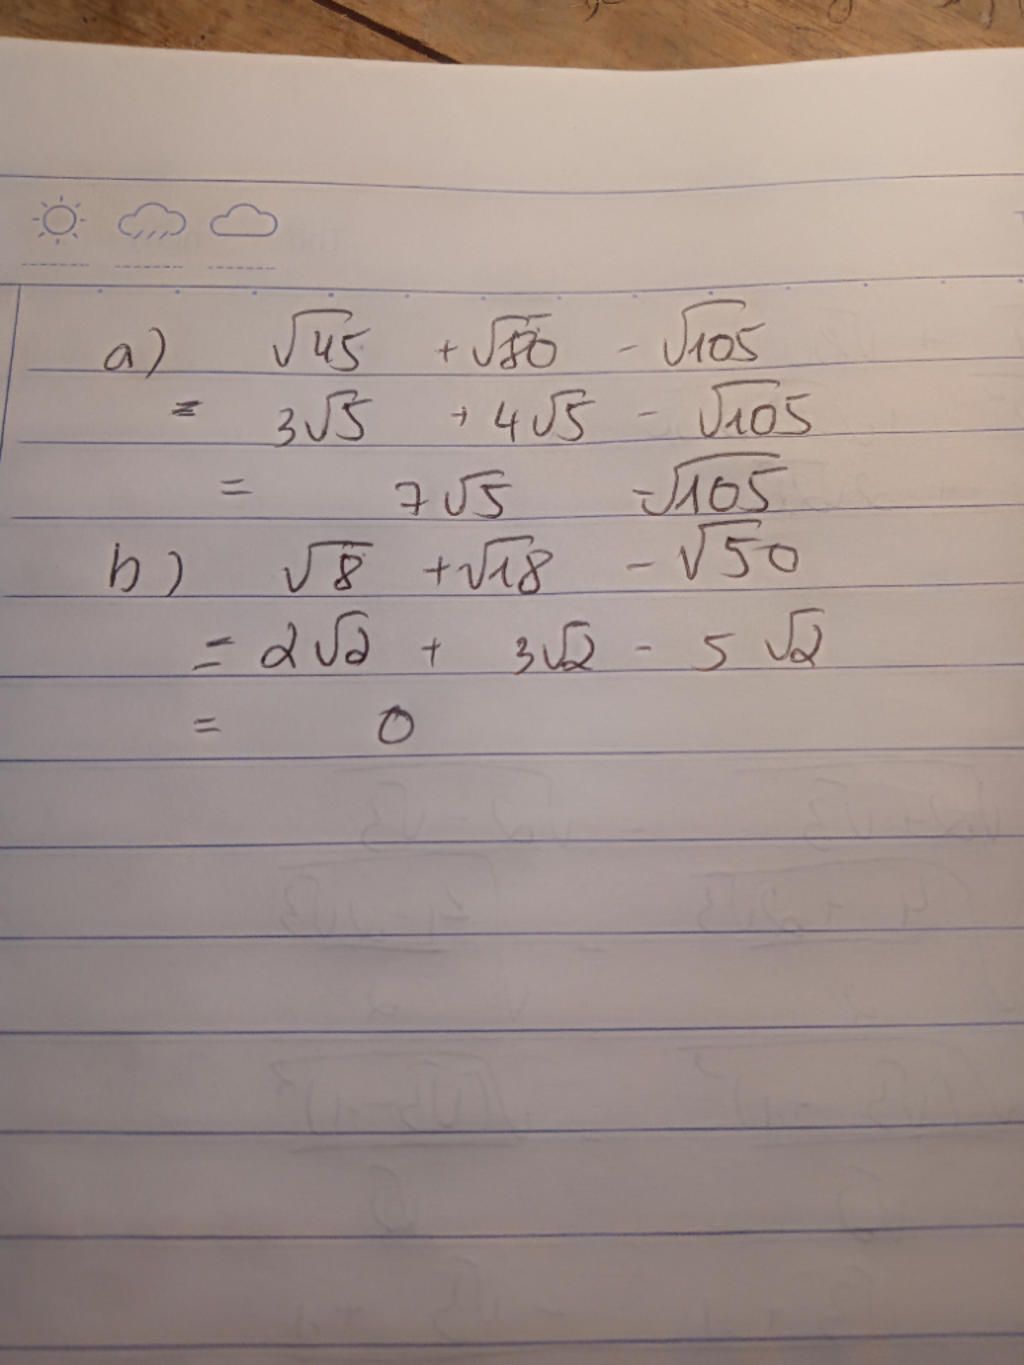 a) √45 + √80 - √105
= 3√5 + 4√5 - √105
= 7√5 - √105
b) √8 + √18 - √50
= 2√2 + 3√2 - 5√2
= 0